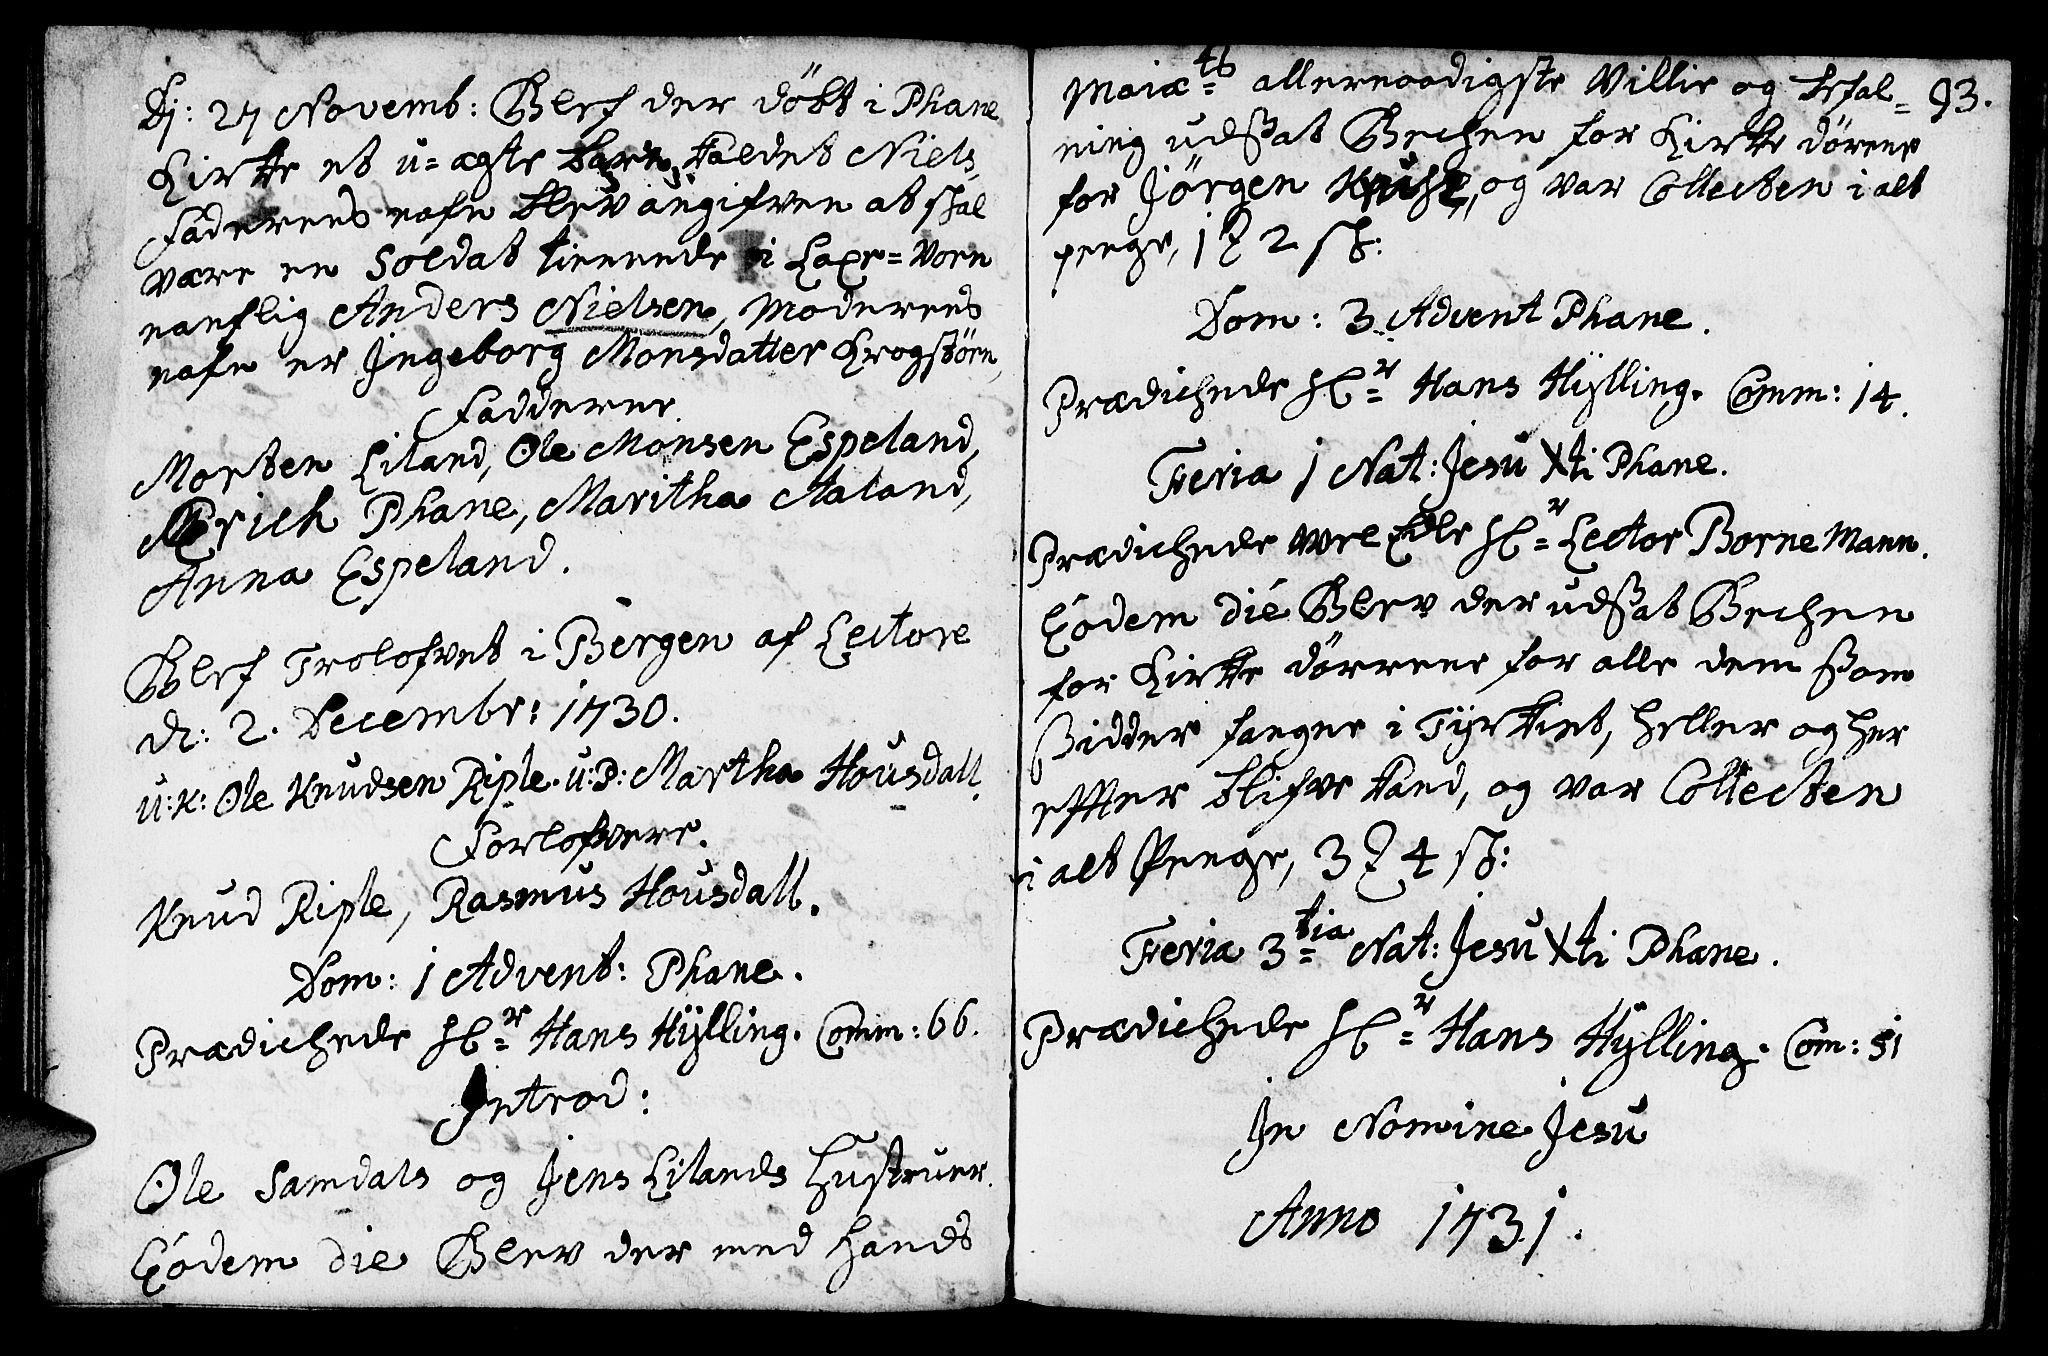 Dj: 27 Novemb: Blef der döbt i Phane
Kirke et u=ægte barn, kaldet Niels,
Faderens nafn blev angifven at skal
være en Soldat tienende i Laxe=Vorn
nanflig Anders Nielsen, Moderens
nafn er Jngeborg Monsdatter Krogstörn,
Faddere
Morten Liland, Ole Monsen Espeland,
Erich Phane, Maritha Aaland,
Anna Espeland.
Blef Trolofvet i Bergen af Lectore
dn: 2. Decembr: 1730.
u:K: Ole Knudsen Riple. u:P: Martha Housdall.
Forlofvere.
Knud Riple, Rasmus Housdall.
Dom: 1 Advent: Phane.
Prædichede Hr= Hans Hÿlling. Comm: 66.
Introd:
Ole Samdals og Jens Lilands Hustruer.
Eodem die Blev der med Hands
Maiæts= allernaadigste Villie og befal= 93.
ning udsat Bechen for Kirke dörene
for Jörgen Kruse, og var Collecten i alt
penge, 1 2 sh:
Dom: 3. Advent Phane.
Prædichede Hr= Hans Hÿlling. Comm: 14.
Feria 1 Nat: Jesu Xti Phane.
Prædichede Vel Edle Hr= Lector Borne Mann.
Eodem die Blev der udsat Bechen
for Kirke dörrene for alle dem som
sidder fangne i Tÿrkiet, heller og her
efter blifve kand, og var Collecten
i alt Penge, 3 4 sh:
Feria 3tia= Nat: Jesu Xti Phane.
Prædichede Hr= Hans Hÿlling. Com: 51
Jn Nomine Jesu
Anno 1731.